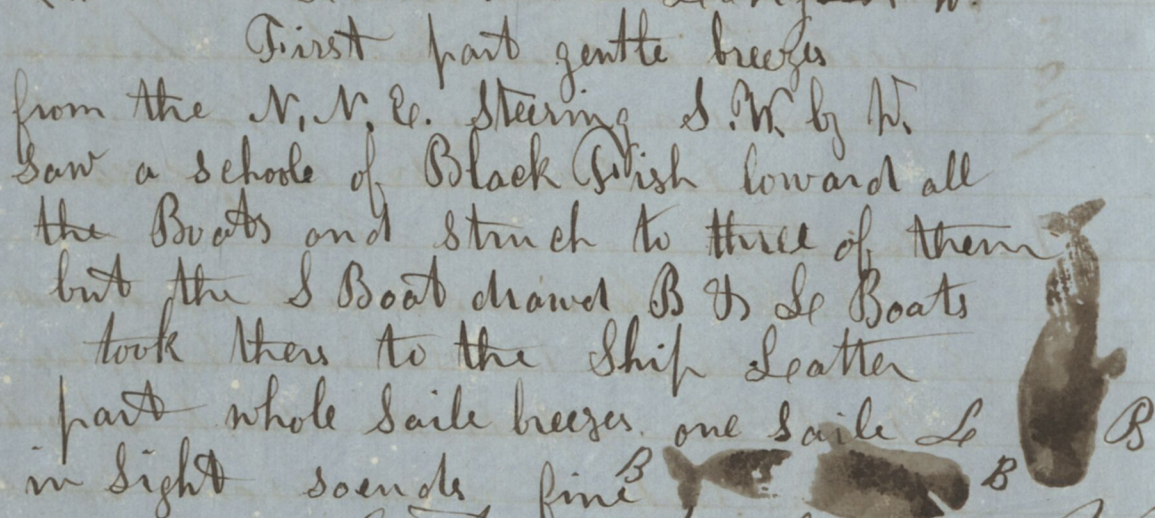 First part gentle breezes
from the N. N. E. Steering S. W. by W.
Saw a schoole of Black Fish loward all
the Boats and struch to three of them
but the S Boat drawd B & Le Boats
took thers to the Ship Leatter
part whole Saile breezes. one Saile Le B
in Sight soends fine B B